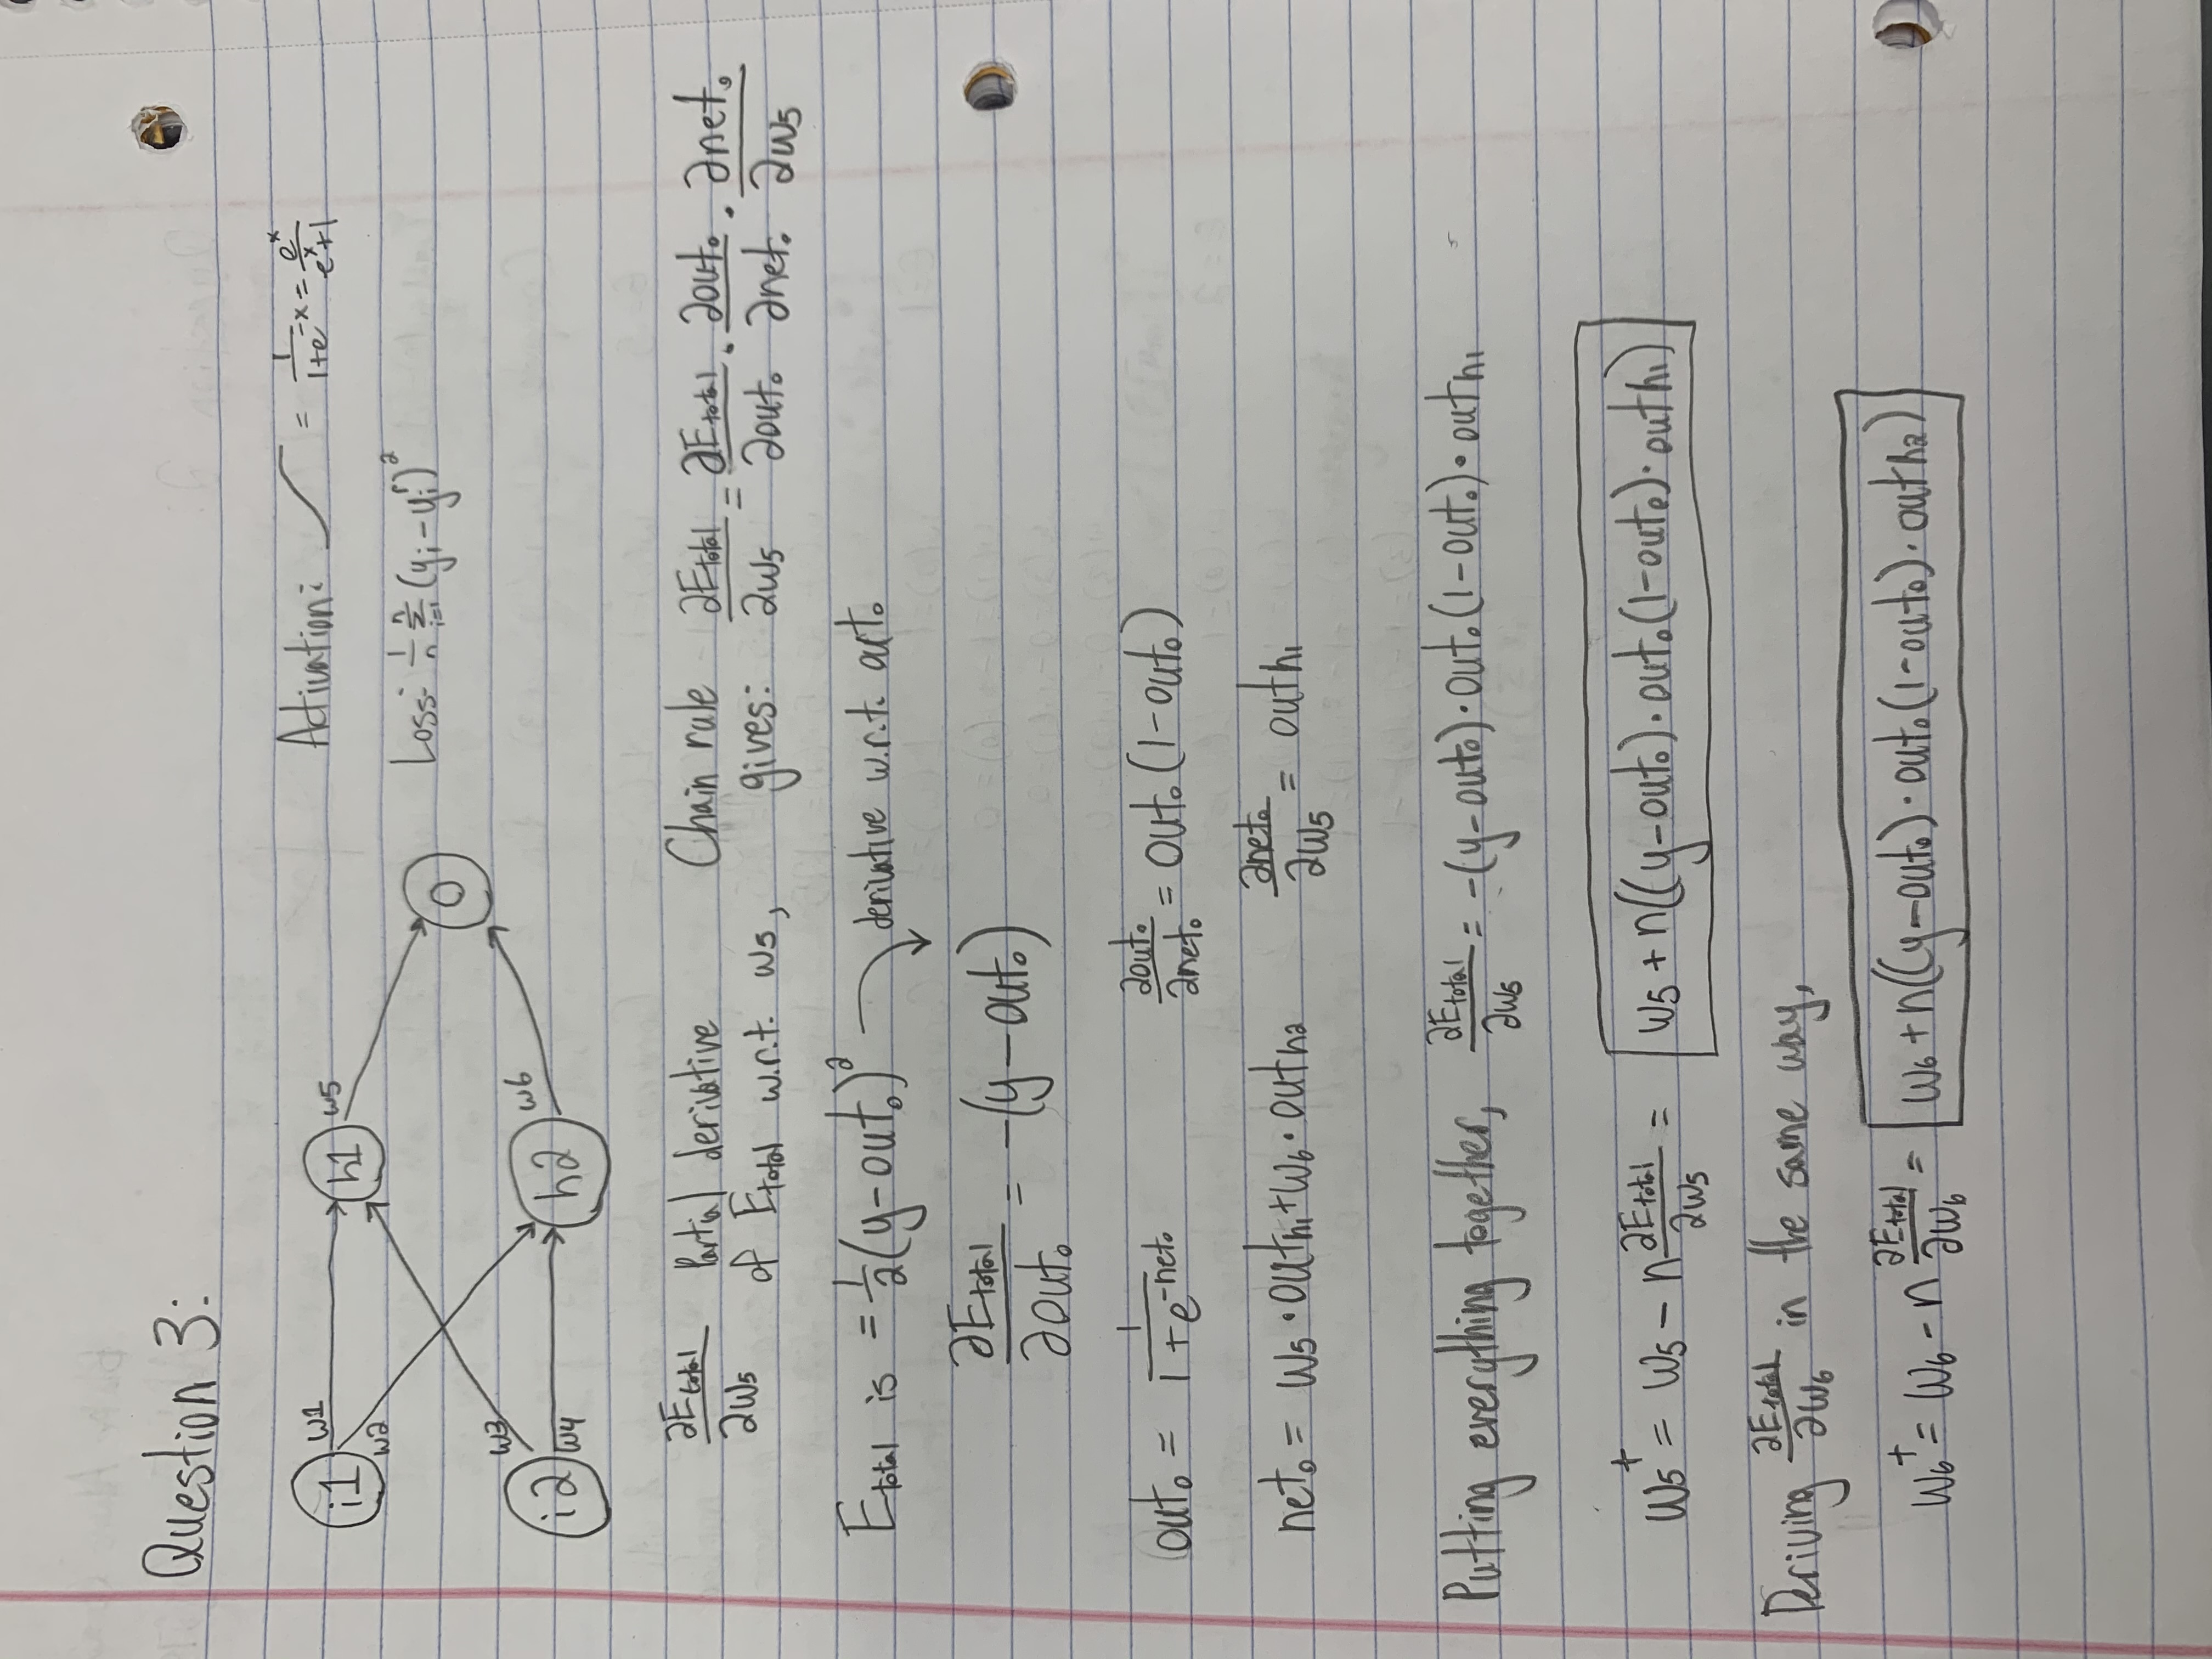 Question 3:
i1 w1 h1 w5
w2
Activation: = 1/(1+e^-x) = e^x/(e^x+1)
Loss: 1/n Σ_{i=1}^{n} (y_i - y_i^p)^2
O
w3
i2 w4 h2 w6
∂E_total/∂w5 Partial derivative of E_total w.r.t. w5,
Chain rule gives: ∂E_total/∂w5 = ∂E_total/∂out_o · ∂out_o/∂net_o · ∂net_o/∂w5
E_total is = 1/2 (y - out_o)^2 derivative w.r.t. out_o
∂E_total/∂out_o = -(y - out_o)
out_o = 1/(1+e^-net_o) ∂out_o/∂net_o = out_o (1 - out_o)
net_o = w5 · out_h1 + w6 · out_h2 ∂net_o/∂w5 = out_h1
Putting everything together, ∂E_total/∂w5 = -(y - out_o) · out_o (1 - out_o) · out_h1
w5^+ = w5 - n ∂E_total/∂w5 = w5 + n((y - out_o) · out_o (1 - out_o) · out_h1)
Deriving ∂E_total/∂w6 in the same way,
w6^+ = w6 - n ∂E_total/∂w6 = w6 + n((y - out_o) · out_o (1 - out_o) · out_h2)